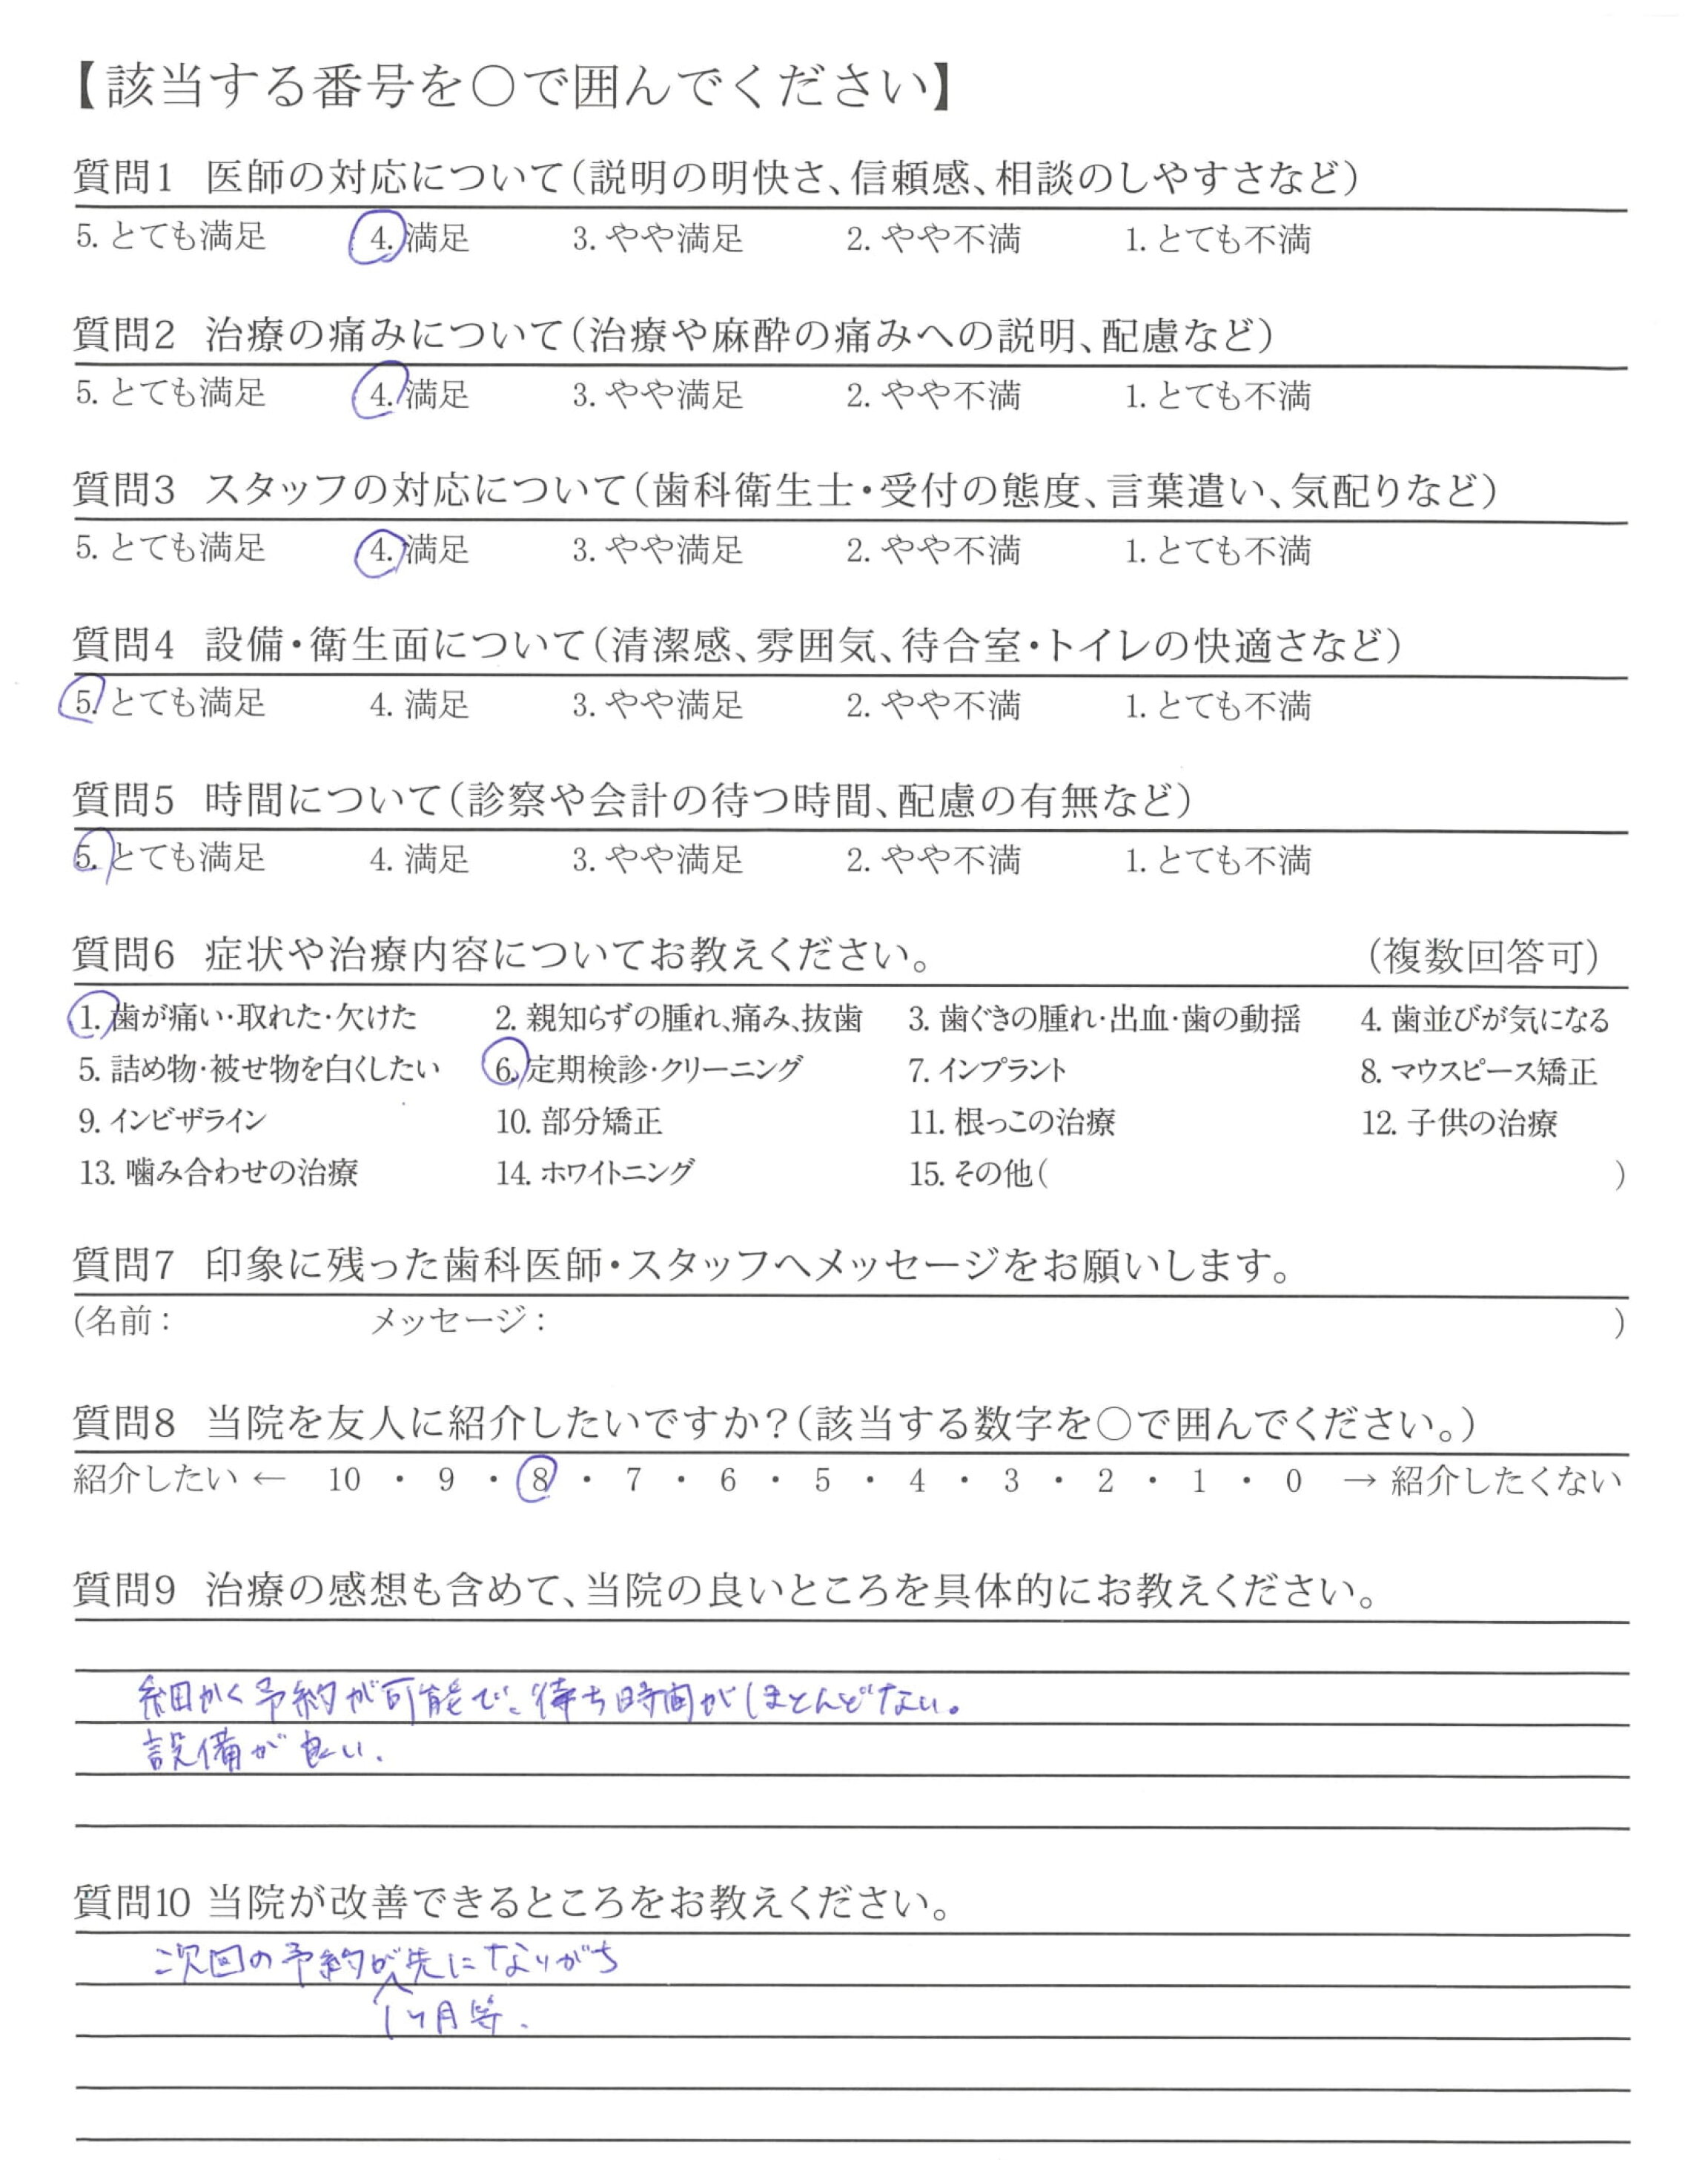 【該当する番号を○で囲んでください】
質問1 医師の対応について(説明の明快さ、信頼感、相談のしやすさなど)
5. とても満足 4. 満足 3. やや満足 2. やや不満 1. とても不満
質問2 治療の痛みについて(治療や麻酔の痛みへの説明、配慮など)
5. とても満足 4. 満足 3. やや満足 2. やや不満 1. とても不満
質問3 スタッフの対応について(歯科衛生士・受付の態度、言葉遣い、気配りなど)
5. とても満足 4. 満足 3. やや満足 2. やや不満 1. とても不満
質問4 設備・衛生面について(清潔感、雰囲気、待合室・トイレの快適さなど)
5. とても満足 4. 満足 3. やや満足 2. やや不満 1. とても不満
質問5 時間について(診察や会計の待つ時間、配慮の有無など)
5. とても満足 4. 満足 3. やや満足 2. やや不満 1. とても不満
質問6 症状や治療内容についてお教えください。 (複数回答可)
1. 歯が痛い・取れた・欠けた 2. 親知らずの腫れ、痛み、抜歯 3. 歯ぐきの腫れ・出血・歯の動揺 4. 歯並びが気になる
5. 詰め物・被せ物を白くしたい 6. 定期検診・クリーニング 7. インプラント 8. マウスピース矯正
9. インビザライン 10. 部分矯正 11. 根っこの治療 12. 子供の治療
13. 噛み合わせの治療 14. ホワイトニング 15. その他( )
質問7 印象に残った歯科医師・スタッフへメッセージをお願いします。
(名前: メッセージ: )
質問8 当院を友人に紹介したいですか?(該当する数字を○で囲んでください。)
紹介したい ← 10 ・ 9 ・ 8 ・ 7 ・ 6 ・ 5 ・ 4 ・ 3 ・ 2 ・ 1 ・ 0 → 紹介したくない
質問9 治療の感想も含めて、当院の良いところを具体的にお教えください。
細かく予約が可能で、待ち時間がほとんどない。
設備が良い.
質問10 当院が改善できるところをお教えください。
次回の予約が先になりがち
1ヶ月等.